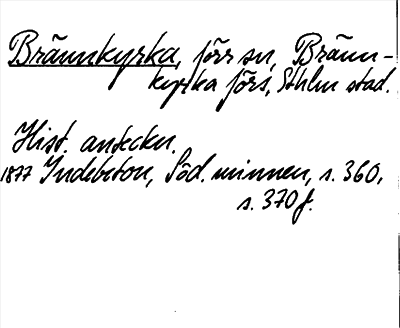 Brännkyrka, förr sn, Bränn-
kyrka förs, Sthlm stad.
Hist. anteckn.
1877 Indebetou, Söd. minnen, s. 360,
s. 370 f.